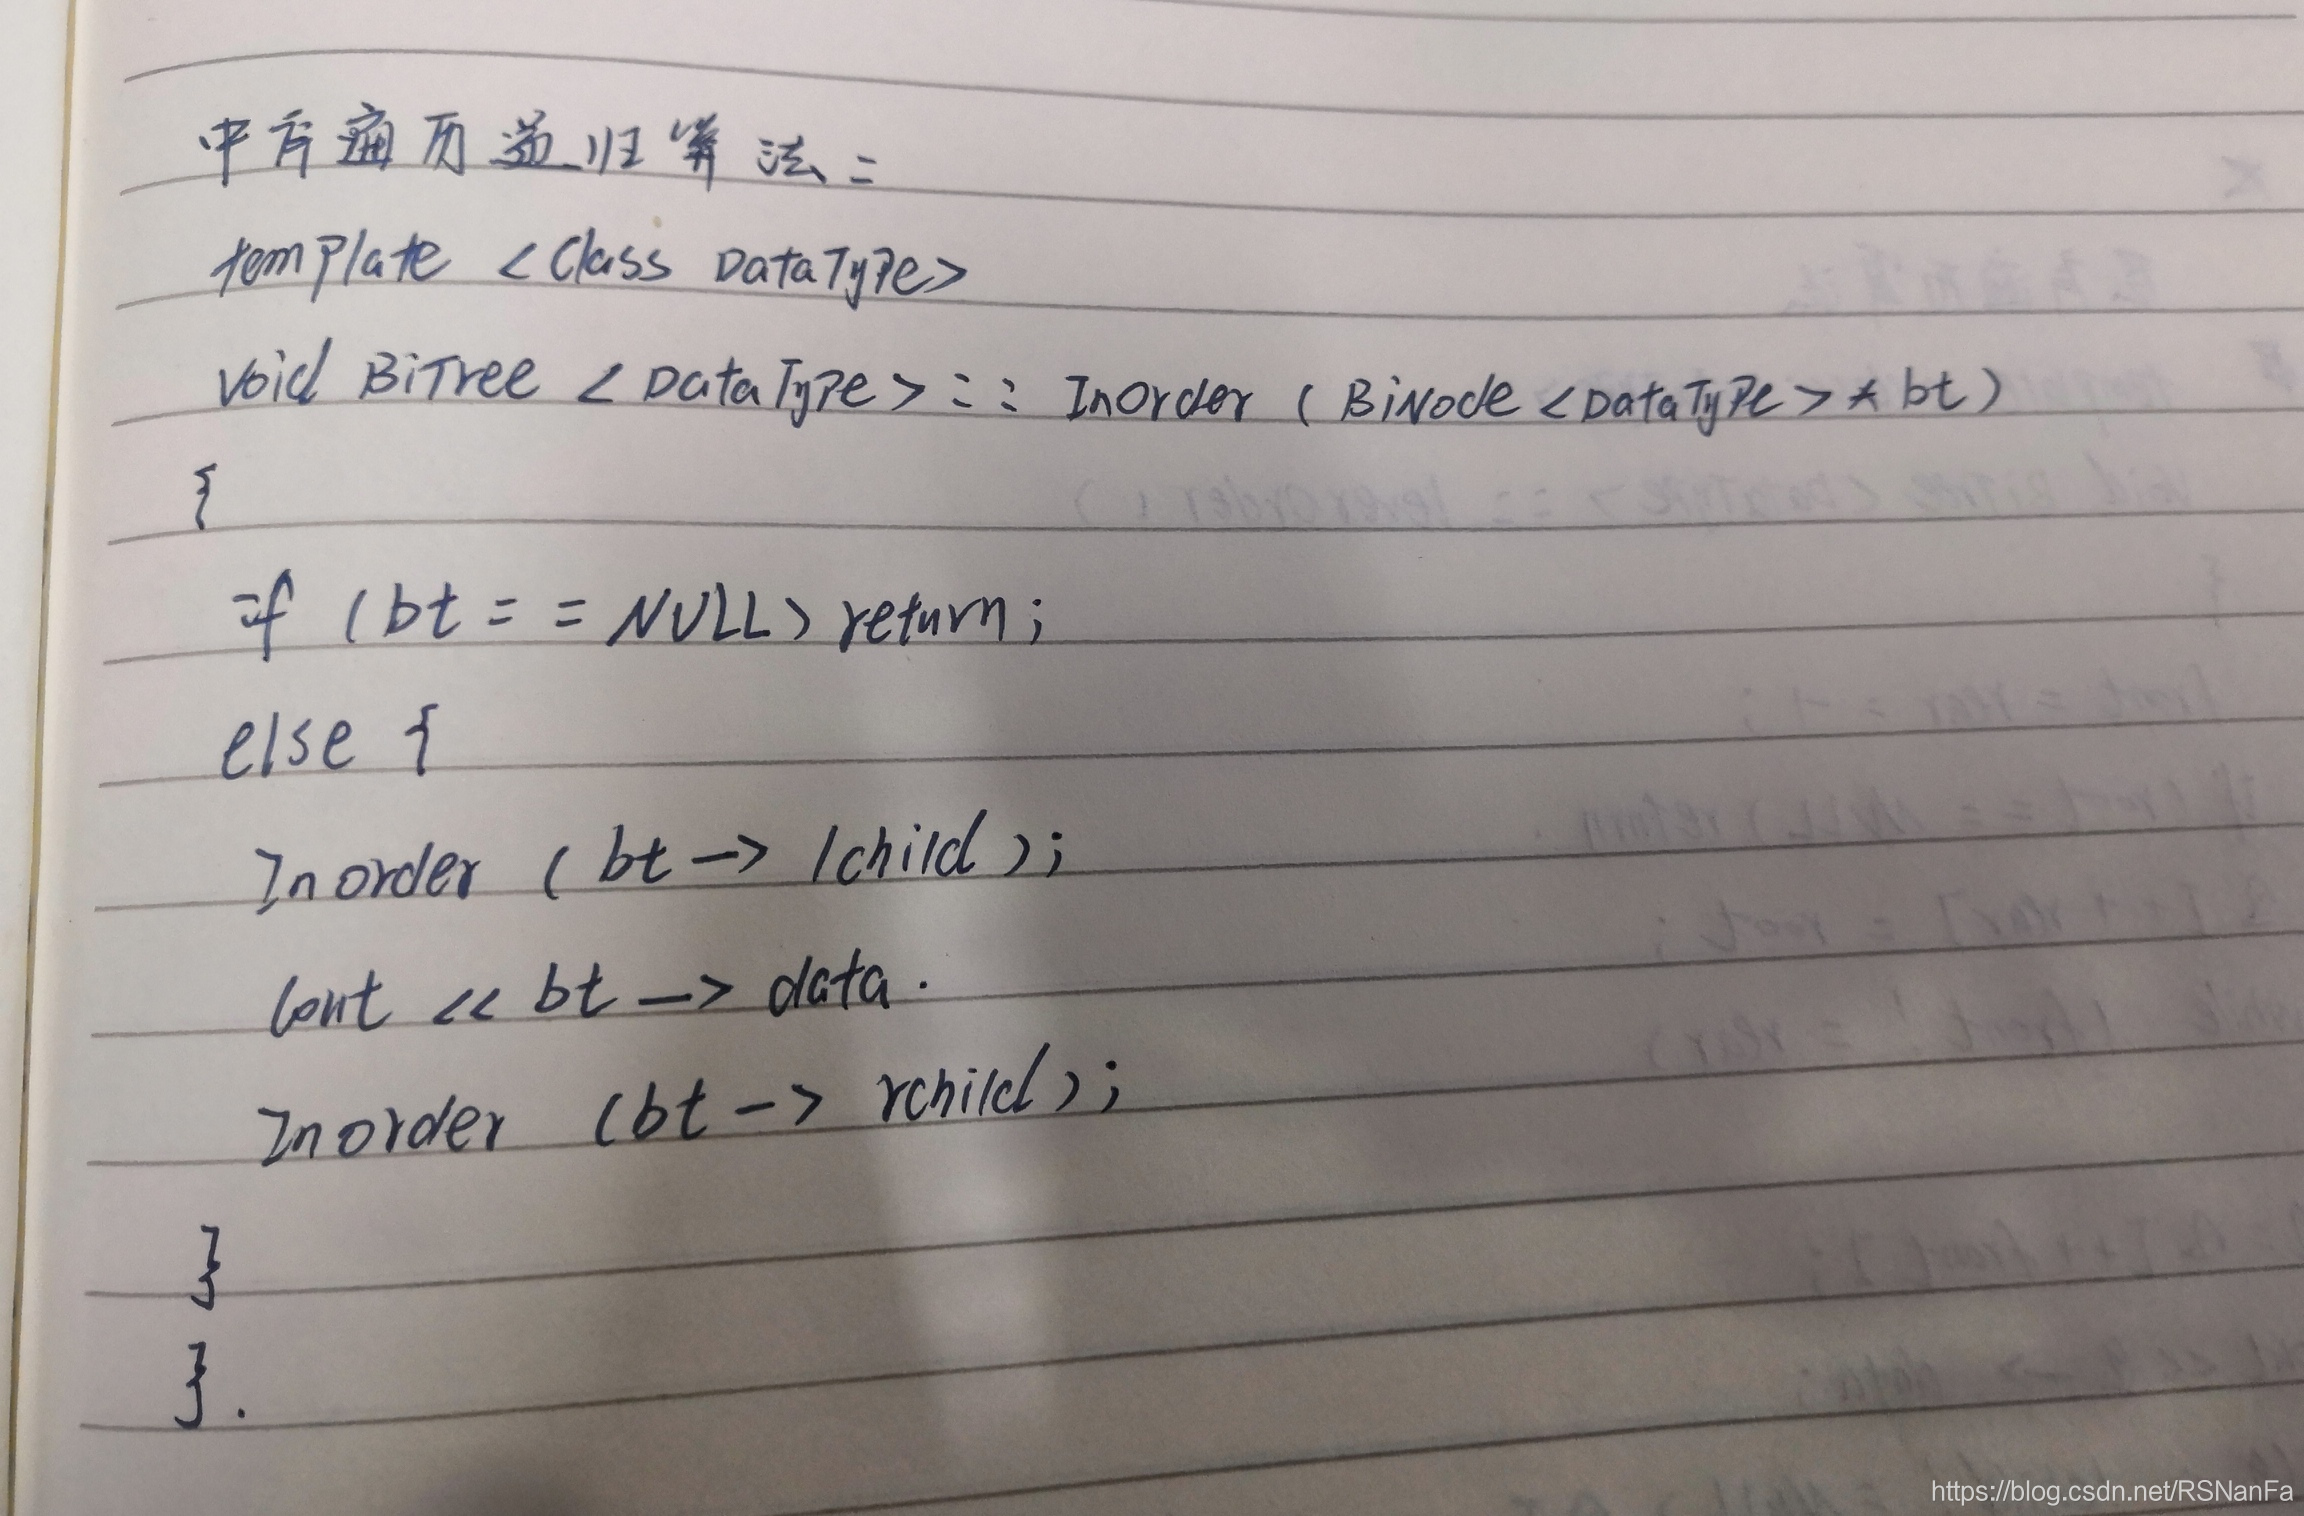 中序遍历递归算法：
template <class DataType>
void BiTree <DataType>:: InOrder (BiNode <DataType>* bt)
{
if (bt == NULL) return;
else {
Inorder (bt -> lchild);
cout << bt -> data.
Inorder (bt -> rchild);
}
}.
https://blog.csdn.net/RSNanFa